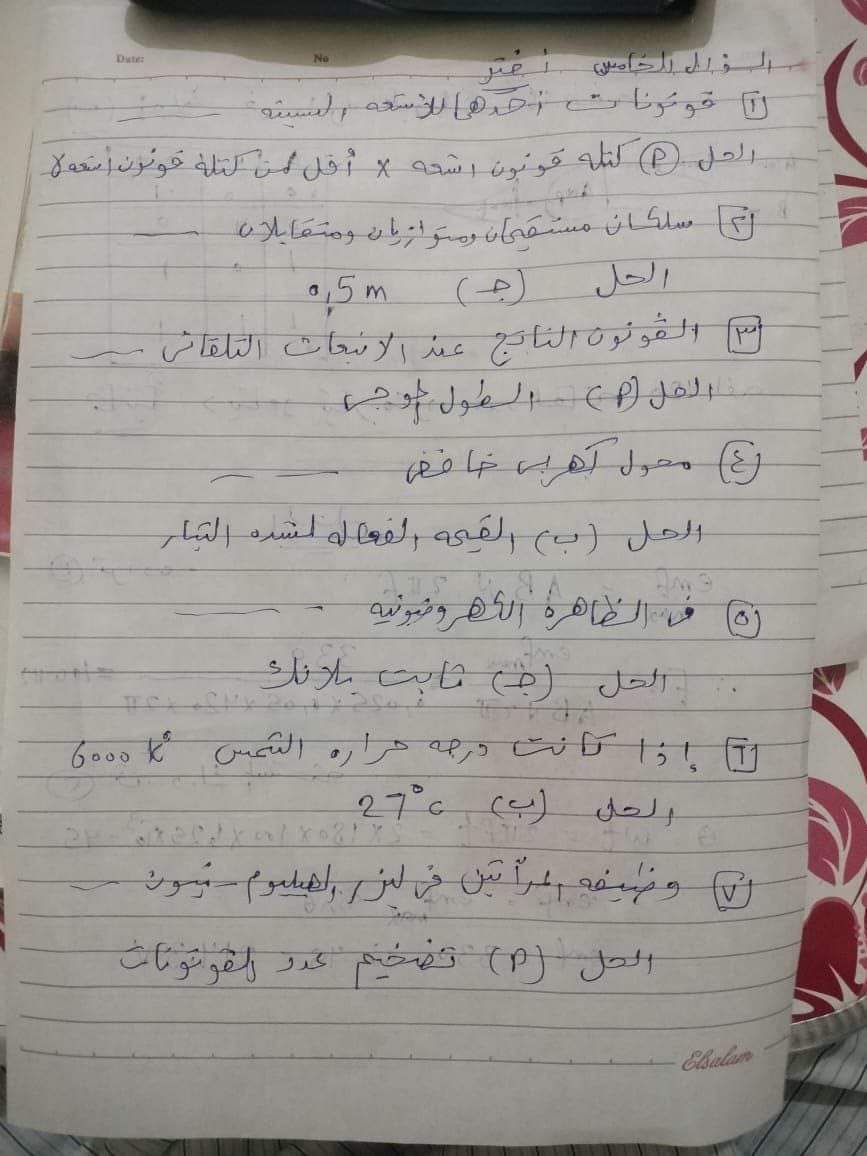 Date: No
السؤال الخامس أختر
١ فوتونات أحدهما للأشعه السينيه
الحل (P) كتله فوتون اشعه x أقل من كتلة فوتون أشعه γ
٢ سلكان مستقيمان ومتوازيان ومتقابلان
الحل (جـ) 0,5 m
٣ الفوتون الناتج عند الانبعاث التلقائى
الحل (P) الطول الموجى
٤ محول كهربى خافض
الحل (ب) القيمه الفعاله لشده التيار
٥ فى الظاهرة الكهروضوئيه
الحل (جـ) ثابت بلانك
٦ إذا كانت درجه حراره الشمس 6000 K°
الحل (ب) 27°c
٧ وظيفه المرآتين فى ليزر الهيليوم - نيون
الحل (P) تضخيم عدد الفوتونات
Elsalam